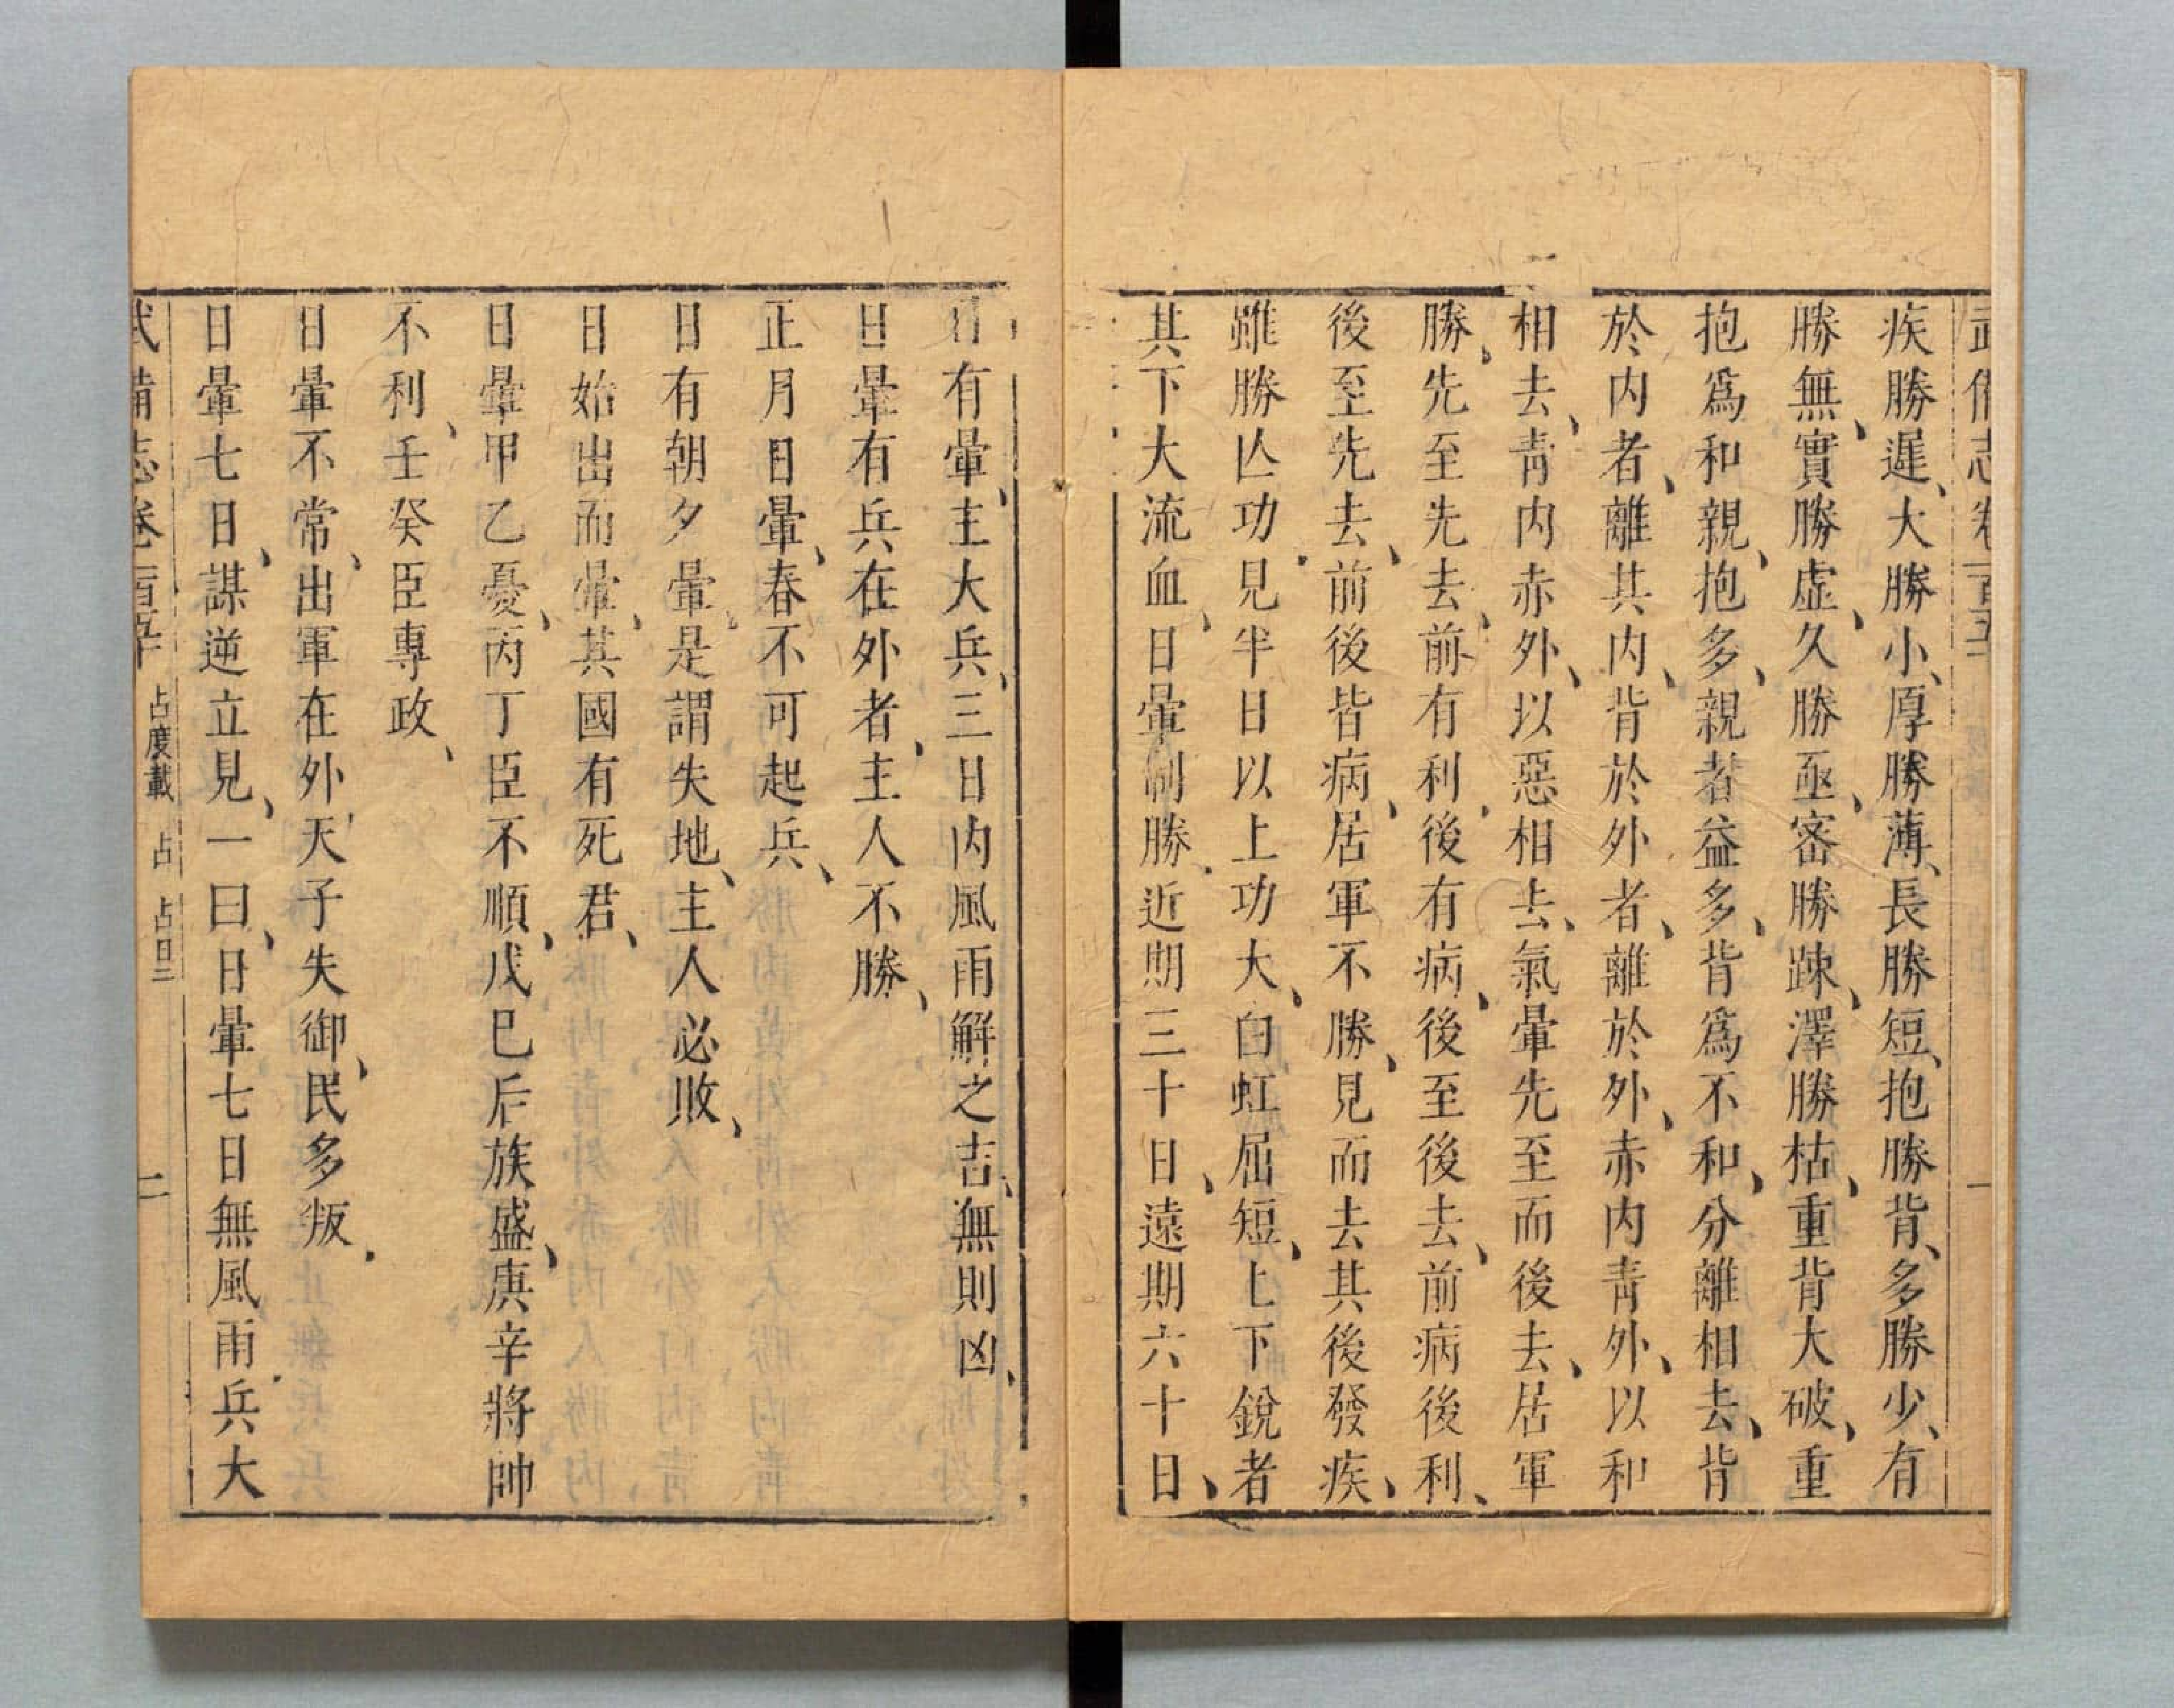 武備志卷一百五十
一
疾勝遲、大勝小、厚勝薄、長勝短、抱勝背、多勝少、有
勝無、實勝虛、久勝亟、密勝疎、澤勝枯、重背大破、重
抱爲和親、抱多、親者益多、背爲不和、分離相去、背
於内者、離其内、背於外者、離於外、赤内靑外、以和
相去、靑内赤外、以惡相去、氣暈先至而後去、居軍
勝、先至先去、前有利、後有病、後至後去、前病後利、
後至先去、前後皆病、居軍不勝、見而去其後發疾、
雖勝亾功、見半日以上功大、白虹屈短、上下銳者
其下大流血、日暈制勝、近期三十日、遠期六十日、
日有暈、主大兵、三日内風雨解之吉、無則凶、
日暈有兵在外者、主人不勝、
正月日暈、春不可起兵、
日有朝夕暈、是謂失地、主人必敗、
日始出而暈、其國有死君、
日暈甲乙憂、丙丁臣不順、戊巳后族盛、庚辛將帥
不利、壬癸臣專政、
日暈不常、出軍在外、天子失御、民多叛、
日暈七日、謀逆立見、一曰、日暈七日無風雨、兵大
武備志卷一百五十 占度載 占 占日二
二